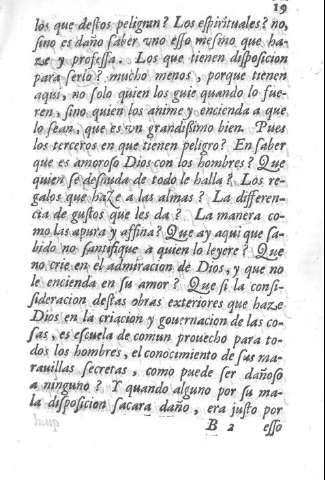 19
los que destos peligran? Los espirituales? no,
sino es daño saber vno esso mesmo que ha-
ze y professa. Los que tienen disposicion
para serlo? mucho menos, porque tienen
aqui, no solo quien los guie quando lo fue-
ren, sino quien los anime y encienda a que
lo sean, que es vn grandissimo bien. Pues
los terceros en que tienen peligro? En saber
que es amoroso Dios con los hombres? Que
quien se desnuda de todo le halla? Los re-
galos que haze a las almas? La differen-
cia de gustos que les da? La manera co-
mo las apura y affina? Que ay aqui que sa-
bido no santifique a quien lo leyere? Que
no crie en el admiracion de Dios, y que no
le encienda en su amor? Que si la consi-
sideracion destas obras exteriores que haze
Dios en la criacion y gouernacion de las co-
sas, es escuela de comun prouecho para to-
dos los hombres, el conocimiento de sus ma-
rauillas secretas, como puede ser dañoso
a ninguno? Y quando alguno por su ma-
la disposicion sacara daño, era justo por
B 2 esso